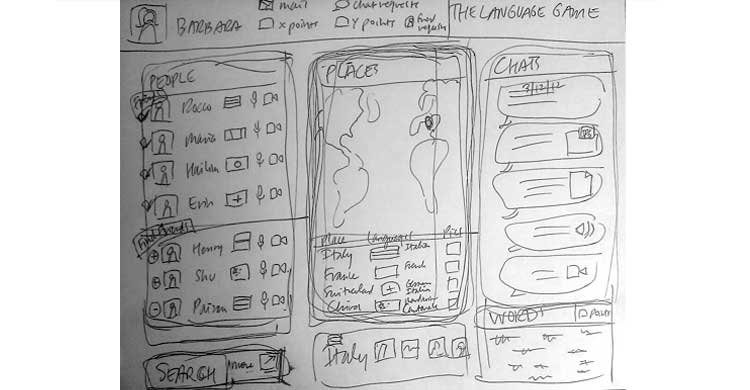 mail
chat requests
BARBARA
x points
Y points
Friend requests
THE LANGUAGE GAME
PEOPLE
Rocco
Maria
Hailin
Erin
Find Friends
Henry
Shu
PLACES
Place Languages Pics
Italy Italian
France French
Switzerland German Italian
China Mandarin Cantonese
CHATS
3/12/12
WORDS
POINTS
SEARCH
more
Italy